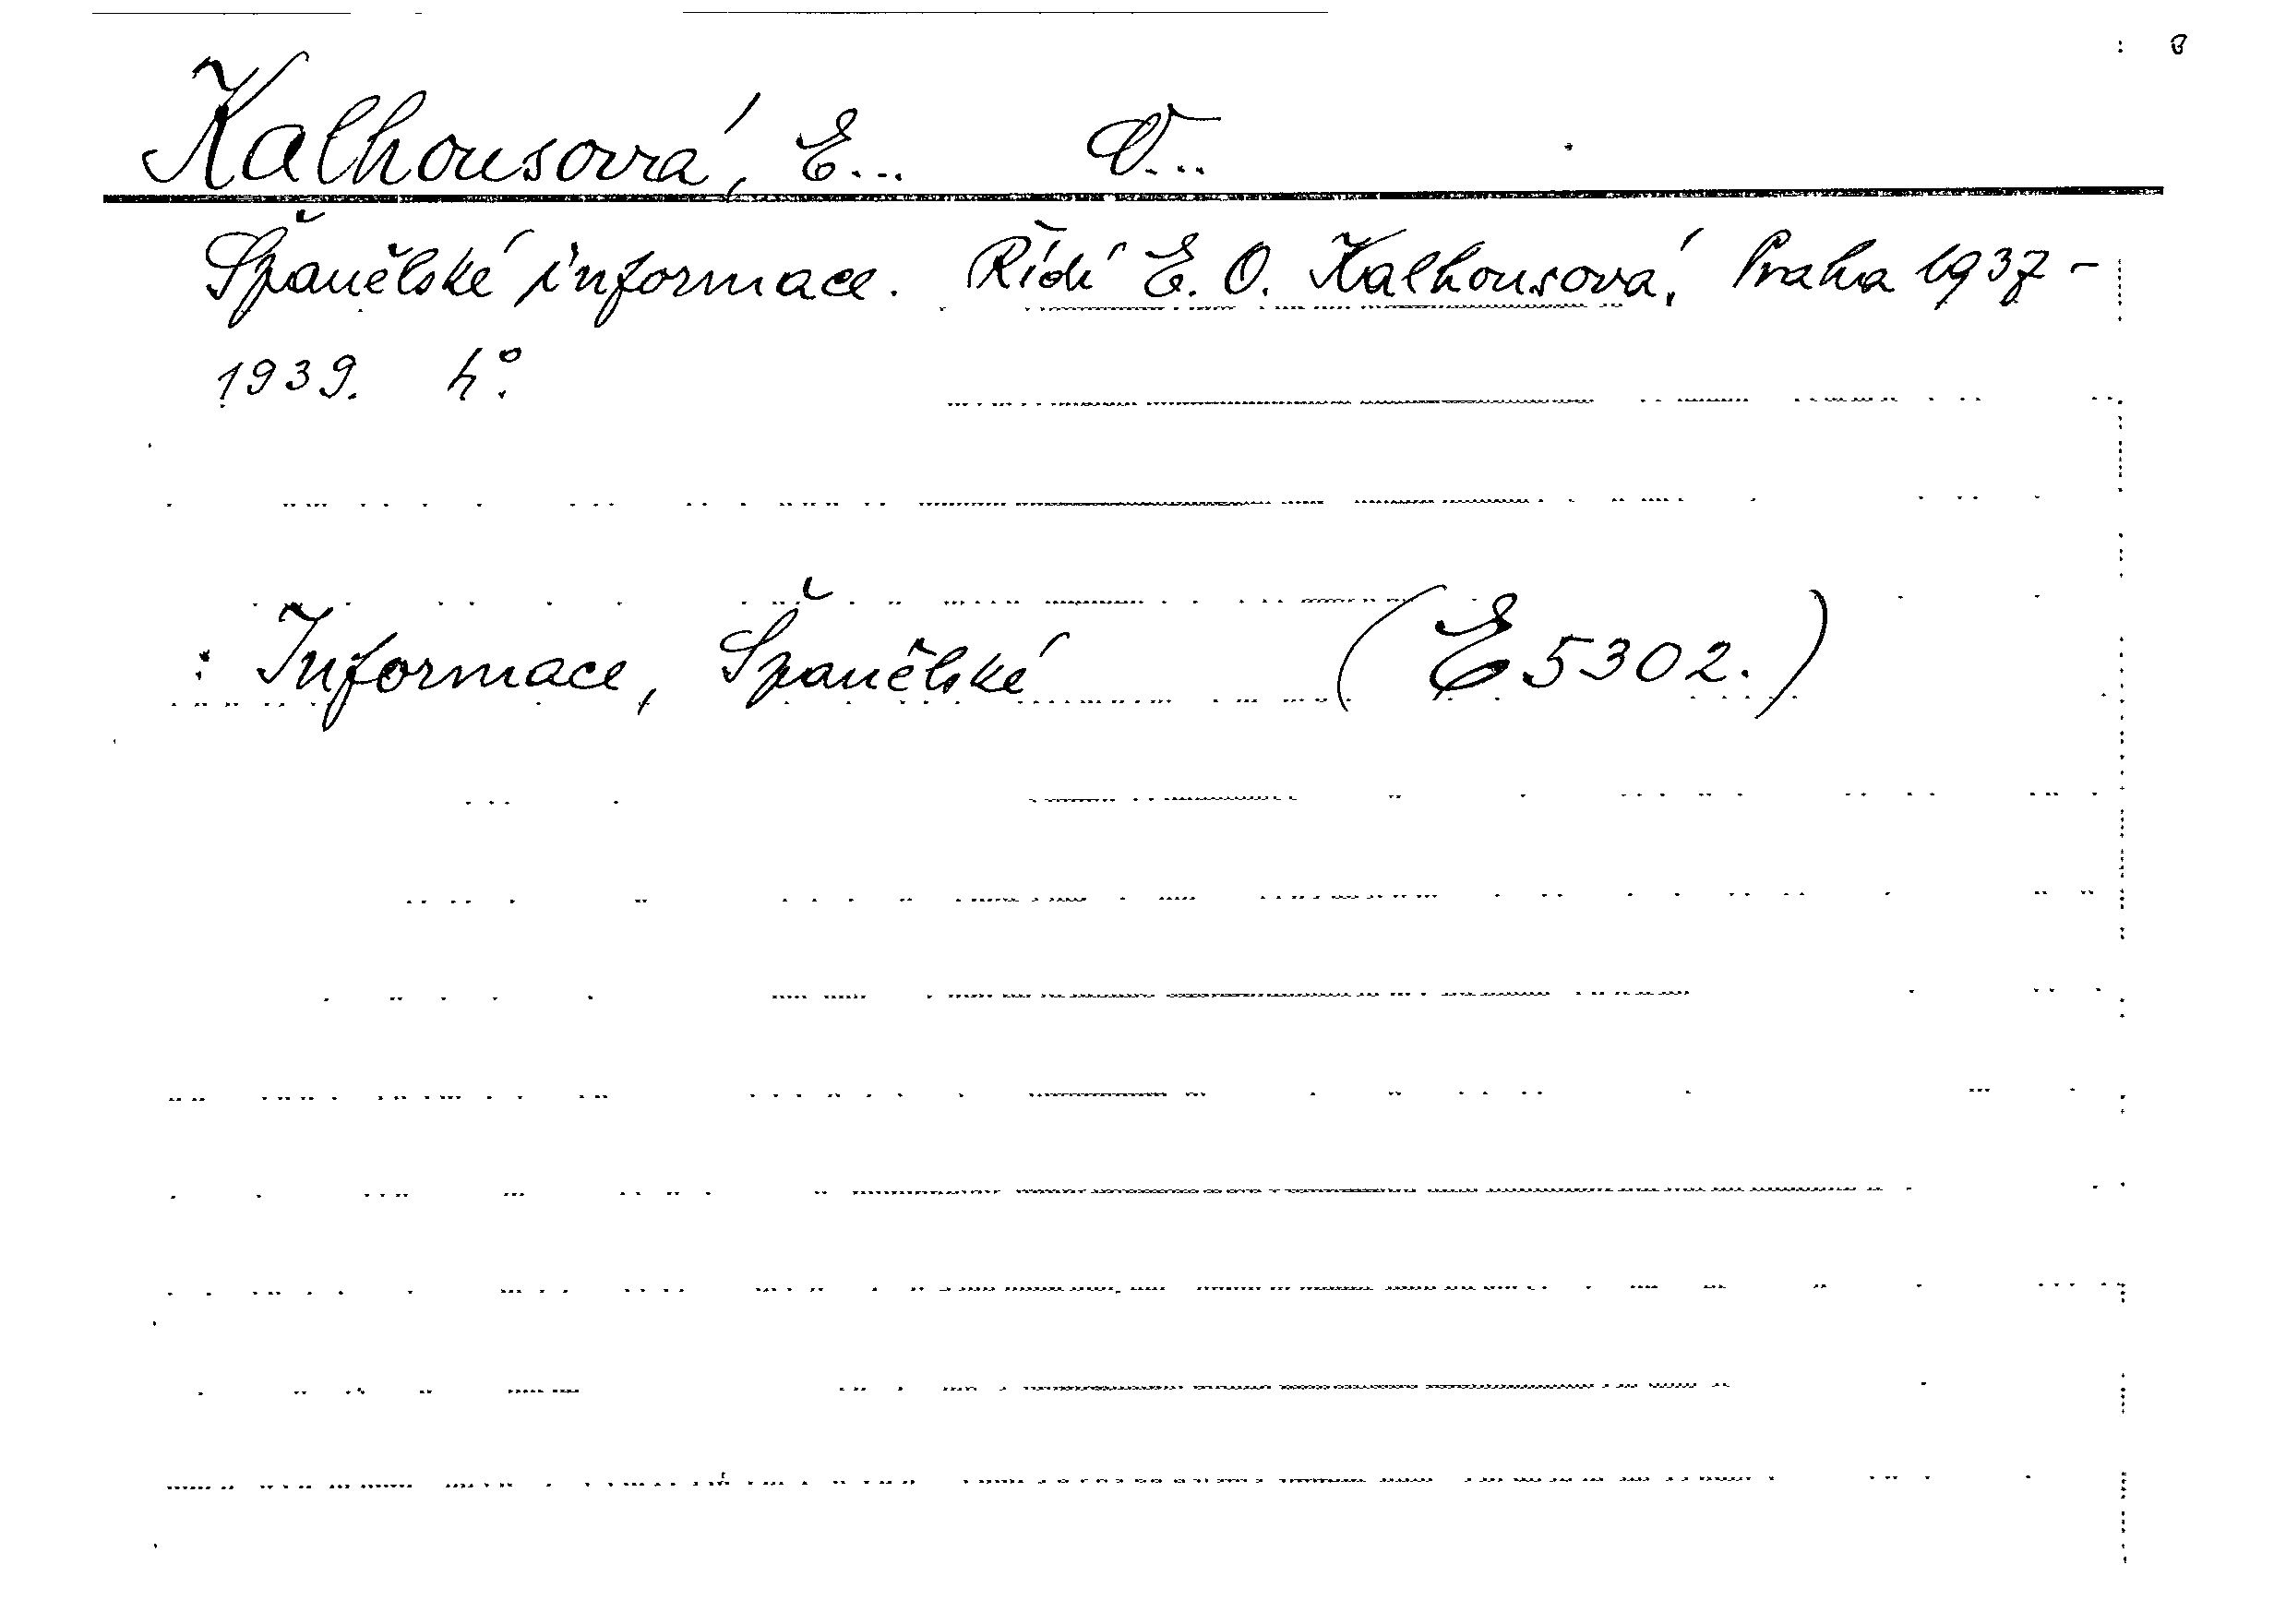 Kalhousová, E... O...
Španělské informace. Řídí E. O. Kalhousová, Praha 1937-
1939. 4°.
: Informace, Španělské (E 5302.)